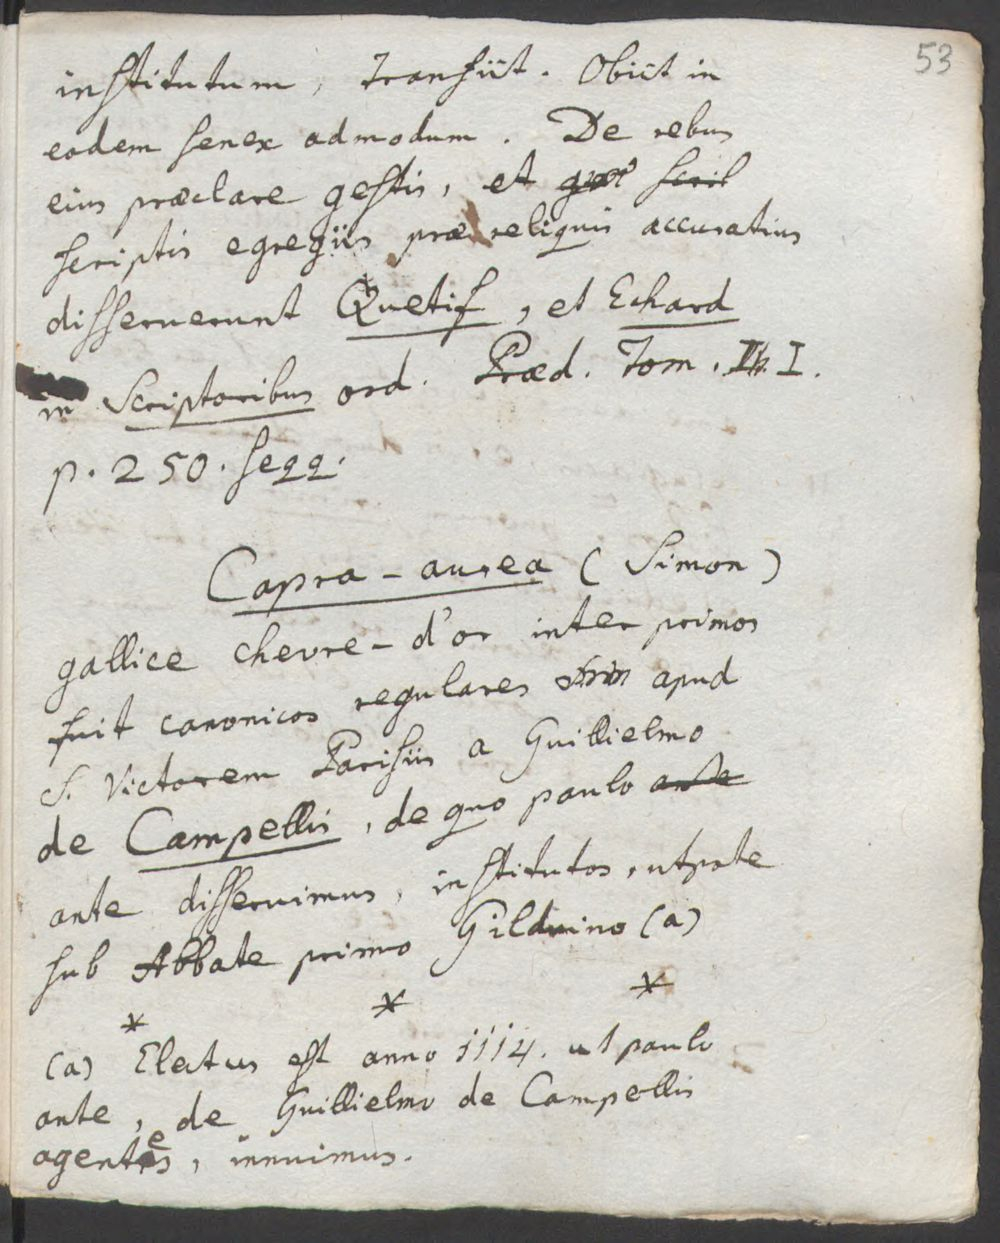 53
institutum, transiit. Obiit in
eodem senex admodum. De rebus
eius præclare gestis, et scrib
scriptis egregiis præ reliquis accuratius
disseruerunt Quetif, et Echard
in Scriptoribus ord. Præd. Tom. I.
p. 250. seqq.
Capra-aurea (Simon)
gallice chevre-d'or inter primos
fuit canonicos regulares apud
S. Victorem Parisiis a Guillielmo
de Campellis, de quo paulo ante
ante disseruimus, institutos, utpote
sub Abbate primo Gilduino (a)
* * *
(a) Electus est anno 1114. ut paulo
ante, de Guillielmo de Campellis
agentes, innuimus.